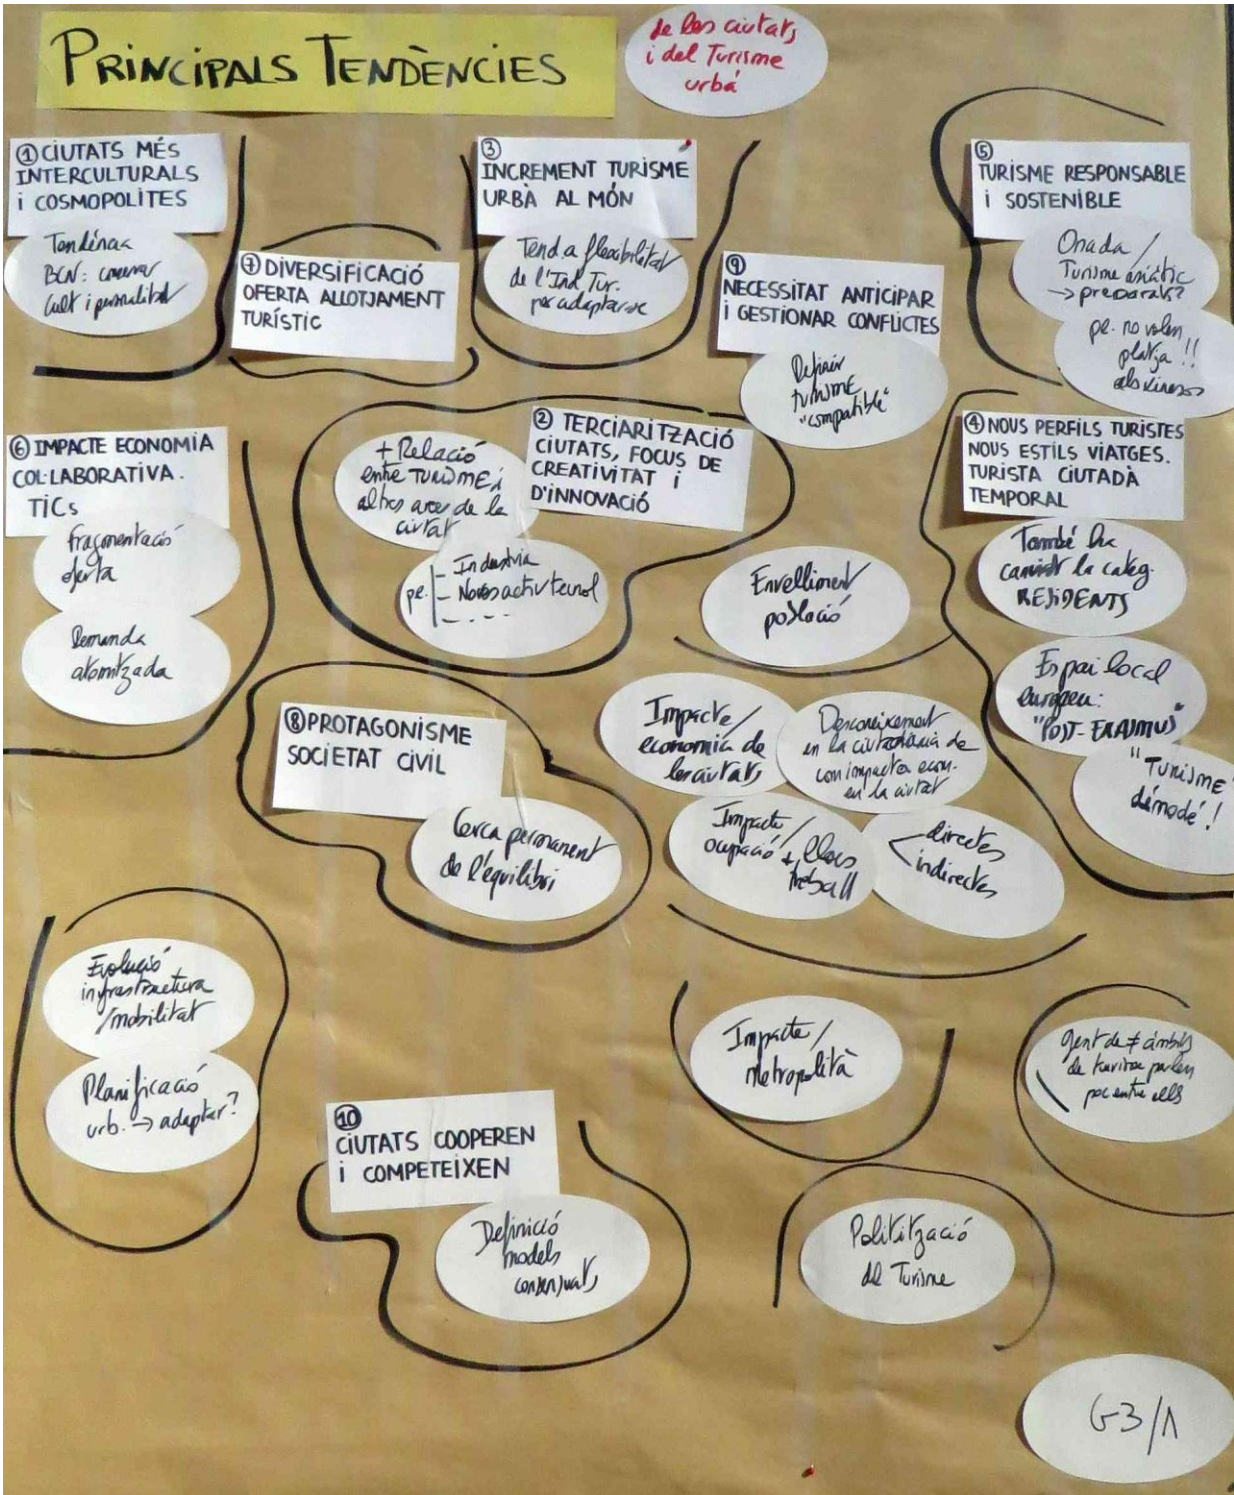 PRINCIPALS TENDÈNCIES
de les ciutats
i del Turisme
urbà
① CIUTATS MÉS
INTERCULTURALS
i COSMOPOLITES
Tendència
BCN: conservar
Cult i personalitat
⑦ DIVERSIFICACIÓ
OFERTA ALLOTJAMENT
TURÍSTIC
③
INCREMENT TURISME
URBÀ AL MÓN
Tend a flexibilitat
de l'Ind Tur.
per adaptar-se
⑨
NECESSITAT ANTICIPAR
i GESTIONAR CONFLICTES
Definir
TURISME
"compatible"
⑤
TURISME RESPONSABLE
i SOSTENIBLE
Onada /
Turisme asiàtic
→ preparats?
pe. no volen
platja !!
els xinesos
⑥ IMPACTE ECONOMIA
COL·LABORATIVA.
TICs
fragmentació
oferta
Demanda
atomitzada
② TERCIARITZACIÓ
CIUTATS, FOCUS DE
CREATIVITAT i
D'INNOVACIÓ
+ Relació
entre TURISME i
altres arees de la
ciutat
pe. - Industria
- Noves activ tecnol
- . . .
④ NOUS PERFILS TURISTES
NOUS ESTILS VIATGES.
TURISTA CIUTADÀ
TEMPORAL
També ha
canviat la categ.
RESIDENTS
Espai local
europeu:
"POST-ERASMUS"
"TURISME"
démodé!
Envelliment
població
⑧ PROTAGONISME
SOCIETAT CIVIL
Cerca permanent
de l'equilibri
Impacte/
economia de
les ciutats
Desconeixement
en la ciutadania de
com impacta econ.
en la ciutat
Impacte/
ocupació + llocs
treball
directes
indirectes
Evolució
infrastructura
/mobilitat
Planificació
urb. → adaptar?
Impacte/
metropolità
gent de ≠ àmbits
de turisme parlen
poc entre ells
⑩
CIUTATS COOPEREN
i COMPETEIXEN
Definició
models
consensuats
Politització
del Turisme
G3/1